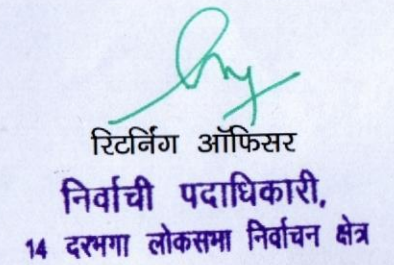 रिटर्निंग ऑफिसर
निर्वाची पदाधिकारी,
14 दरभगा लोकसभा निर्वाचन क्षेत्र